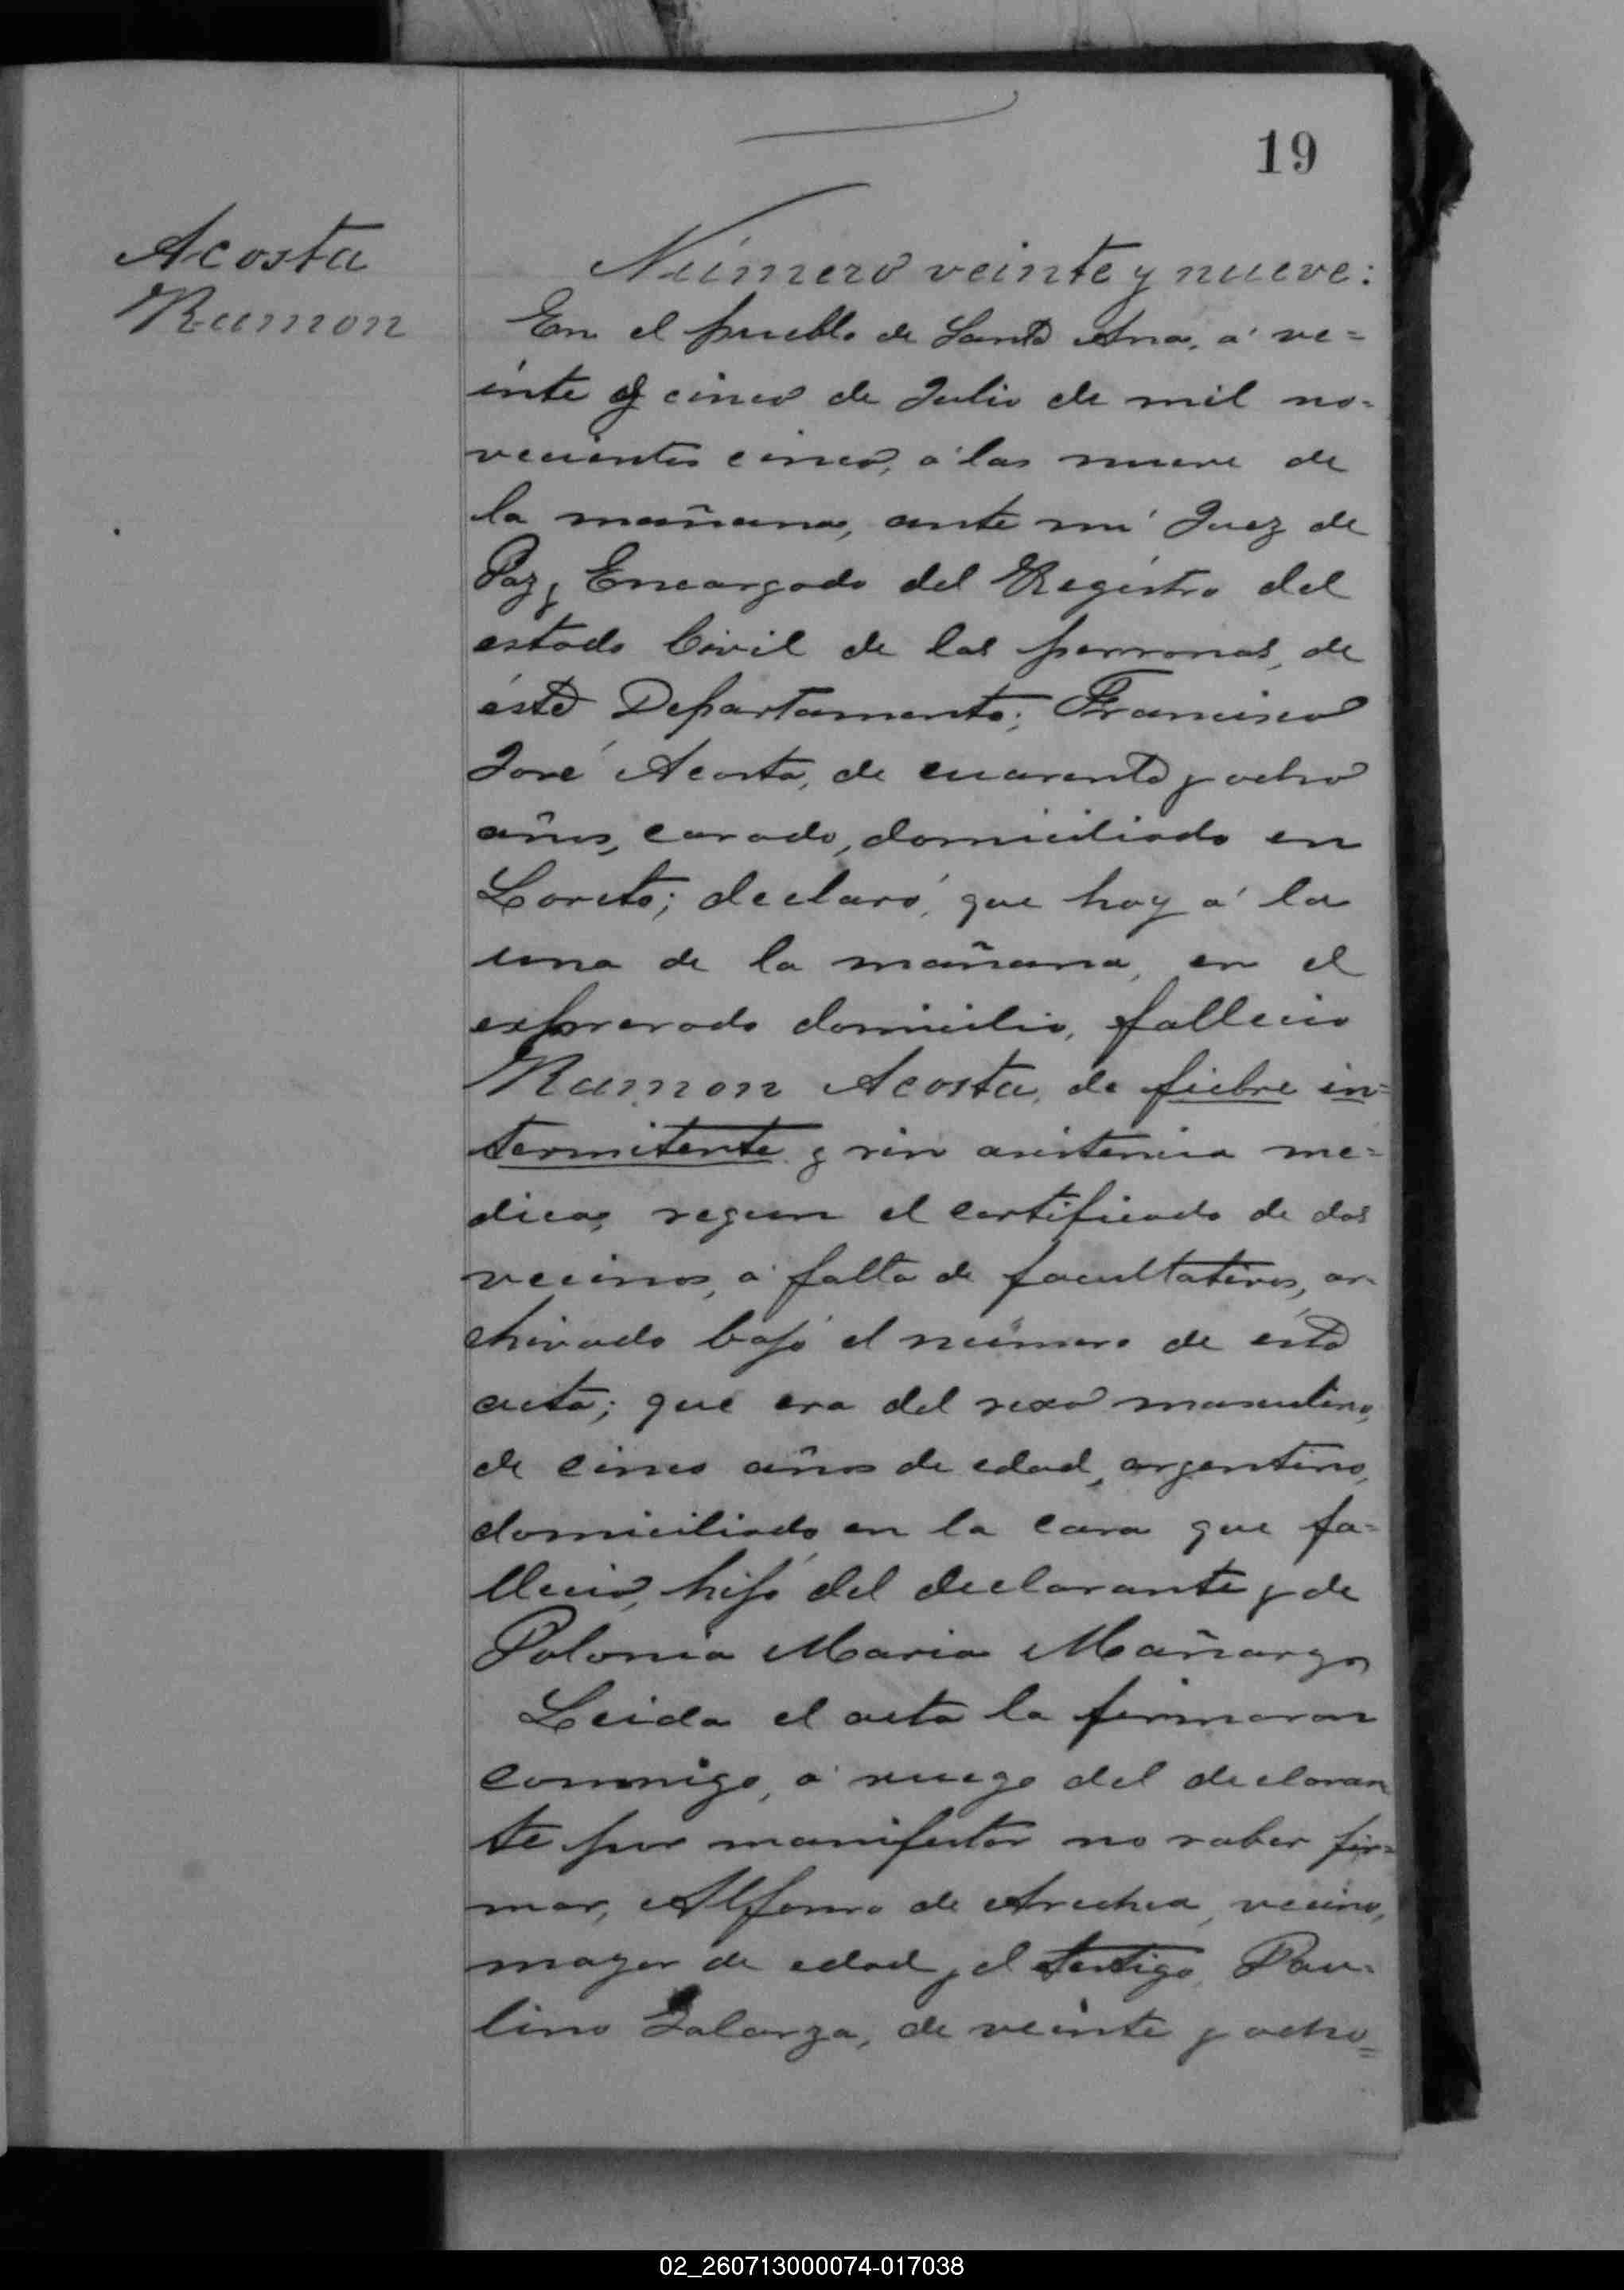 19
Acosta
Ramon
Número veinte y nueve:
En el pueblo de Santa Ana, á ve=
inte y cinco de Julio de mil no-
vecientos cinco, á las nueve de
la mañana, ante mi Juez de
Paz, Encargado del Registro del
estado Civil de las personas, de
éste Departamento; Francisco
José Acosta, de cuarenta y ocho
años, casado, domiciliado en
Loreto; declaró, que hoy á la
una de la mañana, en el
expresado domicilio, fallecio
Ramon Acosta, de fiebre in=
termitente y sin asistencia me=
dica, segun el certificado de dos
vecinos, á falta de facultativos, ar-
chivado bajo el número de esta
acta; que era del sexo masculino,
de cinco años de edad, argentino,
domiciliado en la casa que fa=
llecio, hijo del declarante y de
Polonia Maria Mañargo
Leida el acta la firmaron
conmigo, á ruego del declaran
te por manifestar no saber fir=
mar, Alfonso de Arechea, vecino,
mayor de edad, y el testigo, Pau-
lino Galarza, de veinte y ocho=
02_260713000074-017038